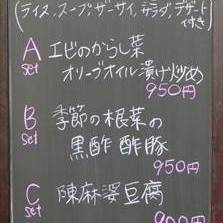 (ライス、スープ、ザーサイ、サラダ、デザート付き)
A set エビのからし菜
オリーブオイル漬け炒め
950円
B set 季節の根菜の
黒酢酢豚
950円
C set 陳麻婆豆腐
900円